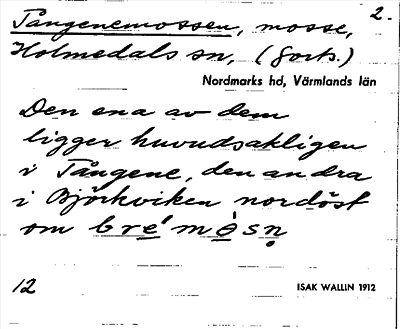 Tångenemossen, mosse, 2.
Holmedals sn, (forts.)
Nordmarks hd, Värmlands län
Den ena av dem
ligger huvudsakligen
i Tångene, den andra
i Björkviken nordöst
om
12
ISAK WALLIN 1912